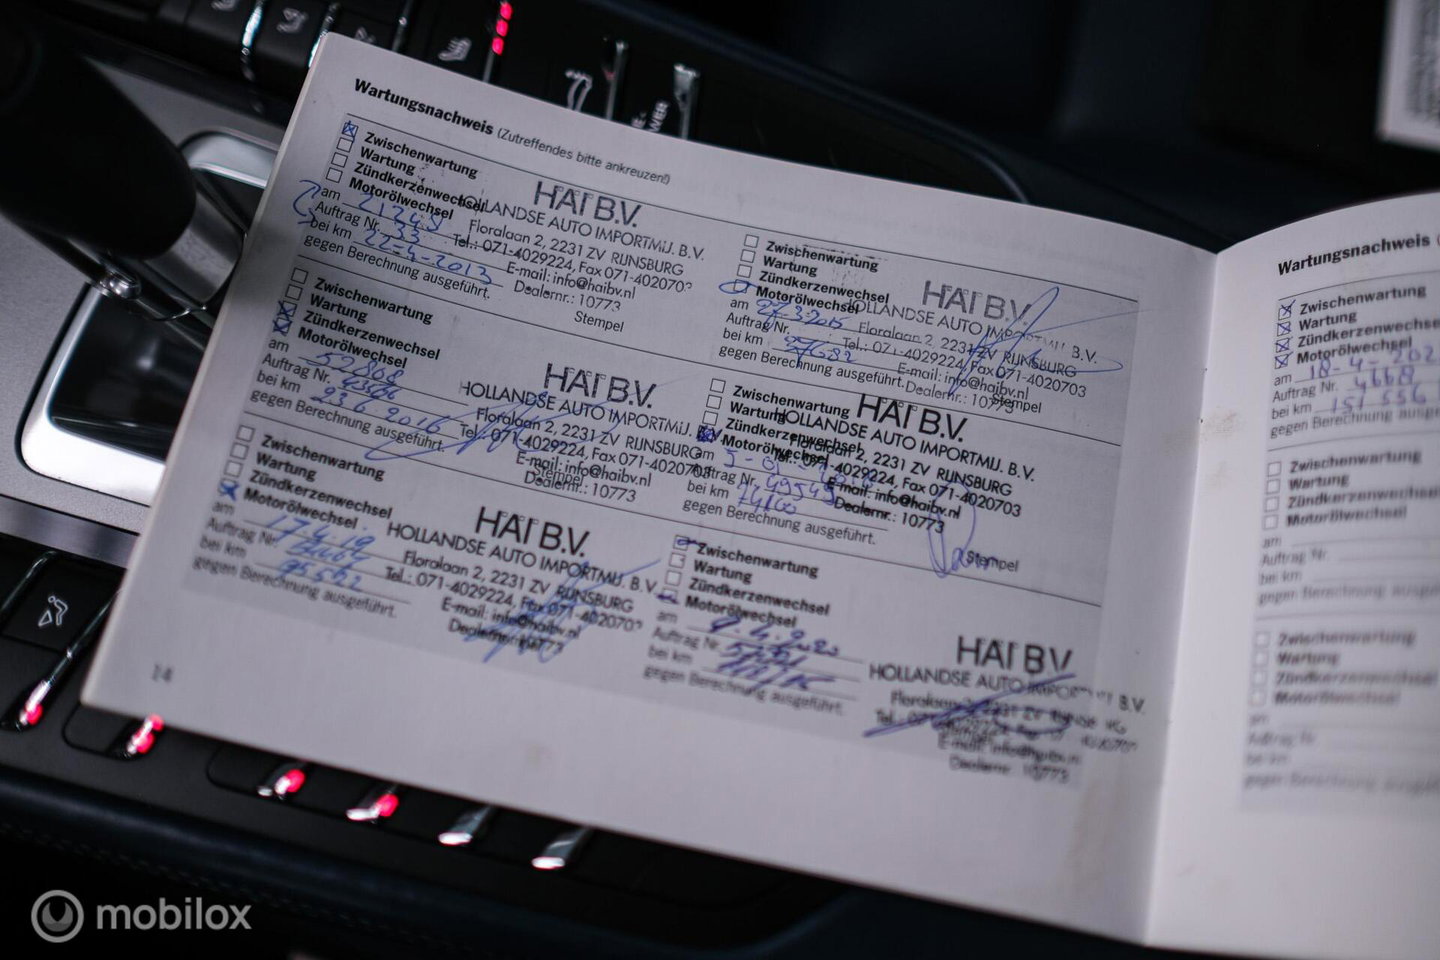 Wartungsnachweis (Zutreffendes bitte ankreuzen!)
Zwischenwartung
Wartung
Zündkerzenwechsel
Motorölwechsel
am 21248
Auftrag Nr. 33
bei km 22-4-2013
gegen Berechnung ausgeführt.
HAI B.V.
HOLLANDSE AUTO IMPORTMIJ. B.V.
Floralaan 2, 2231 ZV RIJNSBURG
Tel.: 071-4029224, Fax 071-402070
E-mail: info@haibv.nl
Dealernr.: 10773
Stempel
Zwischenwartung
Wartung
Zündkerzenwechsel
Motorölwechsel
am 27-3-2015
Auftrag Nr.
bei km
gegen Berechnung ausgeführt.
HAI B.V.
HOLLANDSE AUTO B.V.
Floralaan 2, 2231 ZV RIJNSBURG
Tel.: 071-4029224, Fax 071-4020703
E-mail: info@haibv.nl
Dealernr.: 10773
Stempel
Zwischenwartung
Wartung
Zündkerzenwechsel
Motorölwechsel
am 52808
Auftrag Nr.
bei km 23 6 2016
gegen Berechnung ausgeführt.
HAI B.V.
HOLLANDSE AUTO IMPORTMIJ. B.V.
Floralaan 2, 2231 ZV RIJNSBURG
Tel.: 071-4029224, Fax 071-4020703
E-mail: info@haibv.nl
Stempel
Dealernr.: 10773
Zwischenwartung
Wartung
Zündkerzenwechsel
Motorölwechsel
am
Auftrag Nr. 49545
bei km
gegen Berechnung ausgeführt.
HAI B.V.
HOLLANDSE AUTO IMPORTMIJ. B.V.
Floralaan 2, 2231 ZV RIJNSBURG
Tel.: 071-4029224, Fax 071-4020703
E-mail: info@haibv.nl
Dealernr.: 10773
Stempel
Zwischenwartung
Wartung
Zündkerzenwechsel
Motorölwechsel
am 17.4.19
Auftrag Nr.
bei km
gegen Berechnung ausgeführt.
HAI B.V.
HOLLANDSE AUTO IMPORTMIJ. B.V.
Floralaan 2, 2231 ZV RIJNSBURG
Tel.: 071-4029224, Fax 071-402070
E-mail: info@haibv.nl
Zwischenwartung
Wartung
Zündkerzenwechsel
Motorölwechsel
am
Auftrag Nr.
bei km
gegen Berechnung ausgeführt.
HAI B.V.
HOLLANDSE AUTO B.V.
Floralaan
E-mail: info@haibv.nl
Dealernr.: 10773
14
Wartungsnachweis
Zwischenwartung
Wartung
Zündkerzenwechse
Motorölwechsel
am 18-4-202
Auftrag Nr. 4668
bei km 151 556
gegen Berechnung ausgefü
Zwischenwartung
Wartung
Zündkerzenwechsel
Motorölwechsel
am
Auftrag Nr.
bei km
gegen Berechnung ausgefü
Zwischenwartung
Wartung
Zündkerzenwechsel
Motorölwechsel
am
Auftrag Nr.
bei km
gegen Berechnung
mobilox